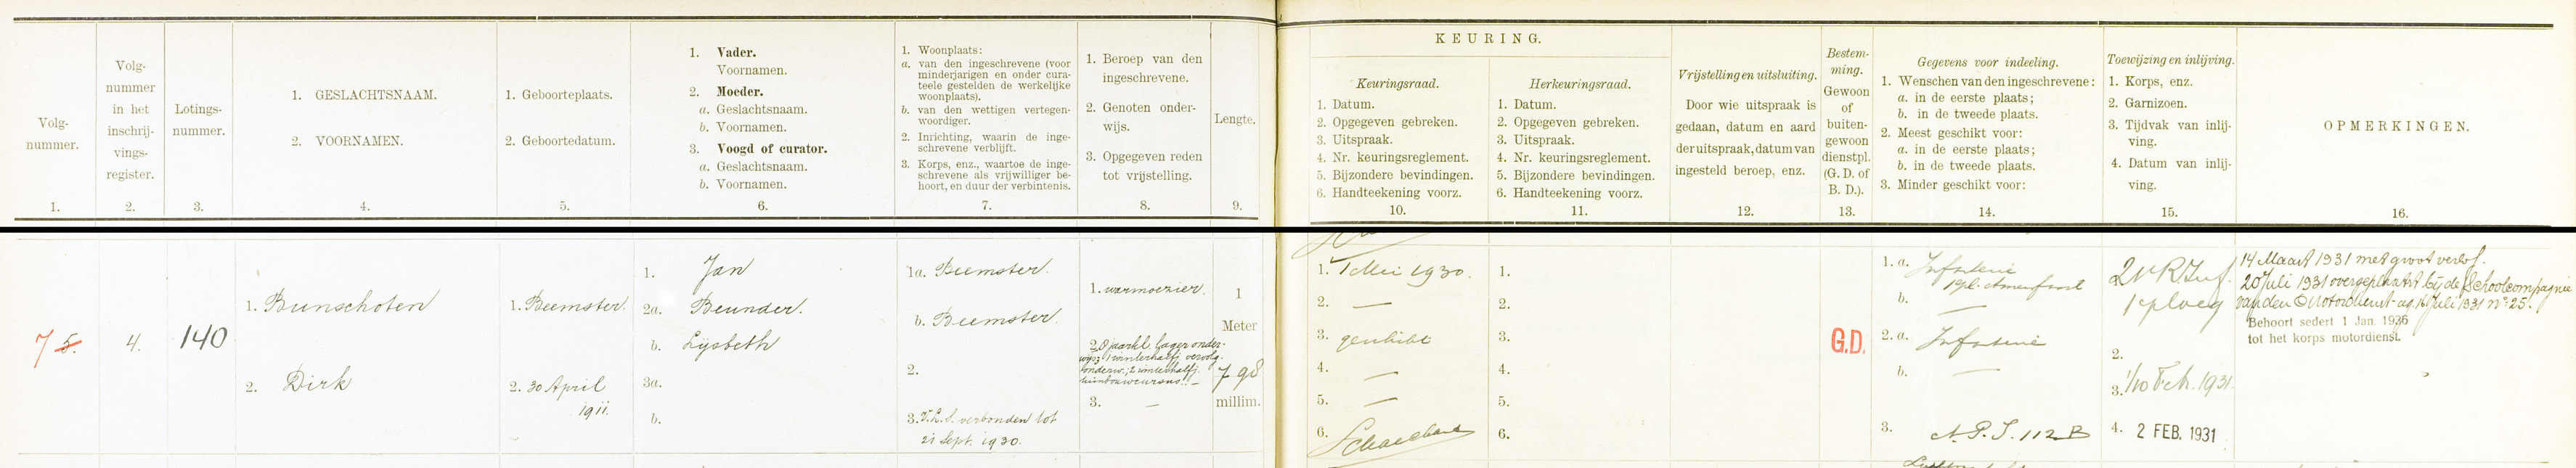 Volg-
nummer.
1.
Volg-
nummer
in het
inschrij-
vings-
register.
2.
Lotings-
nummer.
3.
1. GESLACHTSNAAM.
2. VOORNAMEN.
4.
1. Geboorteplaats.
2. Geboortedatum.
5.
1. Vader.
Voornamen.
2. Moeder.
a. Geslachtsnaam.
b. Voornamen.
3. Voogd of curator.
a. Geslachtsnaam.
b. Voornamen.
6.
1. Woonplaats:
a. van den ingeschrevene (voor
minderjarigen en onder cura-
teele gestelden de werkelijke
woonplaats).
b. van den wettigen vertegen-
woordiger.
2. Inrichting, waarin de inge-
schrevene verblijft.
3. Korps, enz., waartoe de inge-
schrevene als vrijwilliger be-
hoort, en duur der verbintenis.
7.
1. Beroep van den
ingeschrevene.
2. Genoten onder-
wijs.
3. Opgegeven reden
tot vrijstelling.
8.
Lengte.
9.
KEURING.
Keuringsraad.
1. Datum.
2. Opgegeven gebreken.
3. Uitspraak.
4. Nr. keuringsreglement.
5. Bijzondere bevindingen.
6. Handteekening voorz.
10.
Herkeuringsraad.
1. Datum.
2. Opgegeven gebreken.
3. Uitspraak.
4. Nr. keuringsreglement.
5. Bijzondere bevindingen.
6. Handteekening voorz.
11.
Vrijstelling en uitsluiting.
Door wie uitspraak is
gedaan, datum en aard
der uitspraak, datum van
ingesteld beroep, enz.
12.
Bestem-
ming.
Gewoon
of
buiten-
gewoon
dienstpl.
(G. D. of
B. D.).
13.
Gegevens voor indeeling.
1. Wenschen van den ingeschrevene:
a. in de eerste plaats;
b. in de tweede plaats.
2. Meest geschikt voor:
a. in de eerste plaats;
b. in de tweede plaats.
3. Minder geschikt voor:
14.
Toewijzing en inlijving.
1. Korps, enz.
2. Garnizoen.
3. Tijdvak van inlij-
ving.
4. Datum van inlij-
ving.
15.
OPMERKINGEN.
16.
7 5.
4.
140
1. Bunschoten
2. Dirk
1. Beemster.
2. 30 April
1911.
1. Jan
2a. Beunder.
b. Lijsbeth
3a.
b.
1a. Beemster.
b. Beemster.
2.
3. V.L.S. verbonden tot
21 Sept. 1930.
1. warmoezier.
2. 8 jaarkl. lager onder-
wijs; 1 winterhalfj. vervolg-
onderw.; 2 winterhalfj.
tuinbouwcursus. –
3. –
1
Meter
798
millim.
1. 1 Mei 1930.
2. —
3. geschikt
4. —
5. —
6.
1.
2.
3.
4.
5.
6.
G.D.
1. a. Infanterie
b. —
2. a. Infanterie
b. —
3. A.P.S. 112 B
21 R. Inf.
1e ploeg
2.
3. 1/10 Feb. 1931.
4. 2 FEB. 1931
14 Maart 1931 met groot verlof.
20 Juli 1931 overgeplaatst bij de Schoolcompagnie
van den Motordienst ag. 16 Juli 1931 no 25.
Behoort sedert 1 Jan. 1936
tot het korps motordienst.